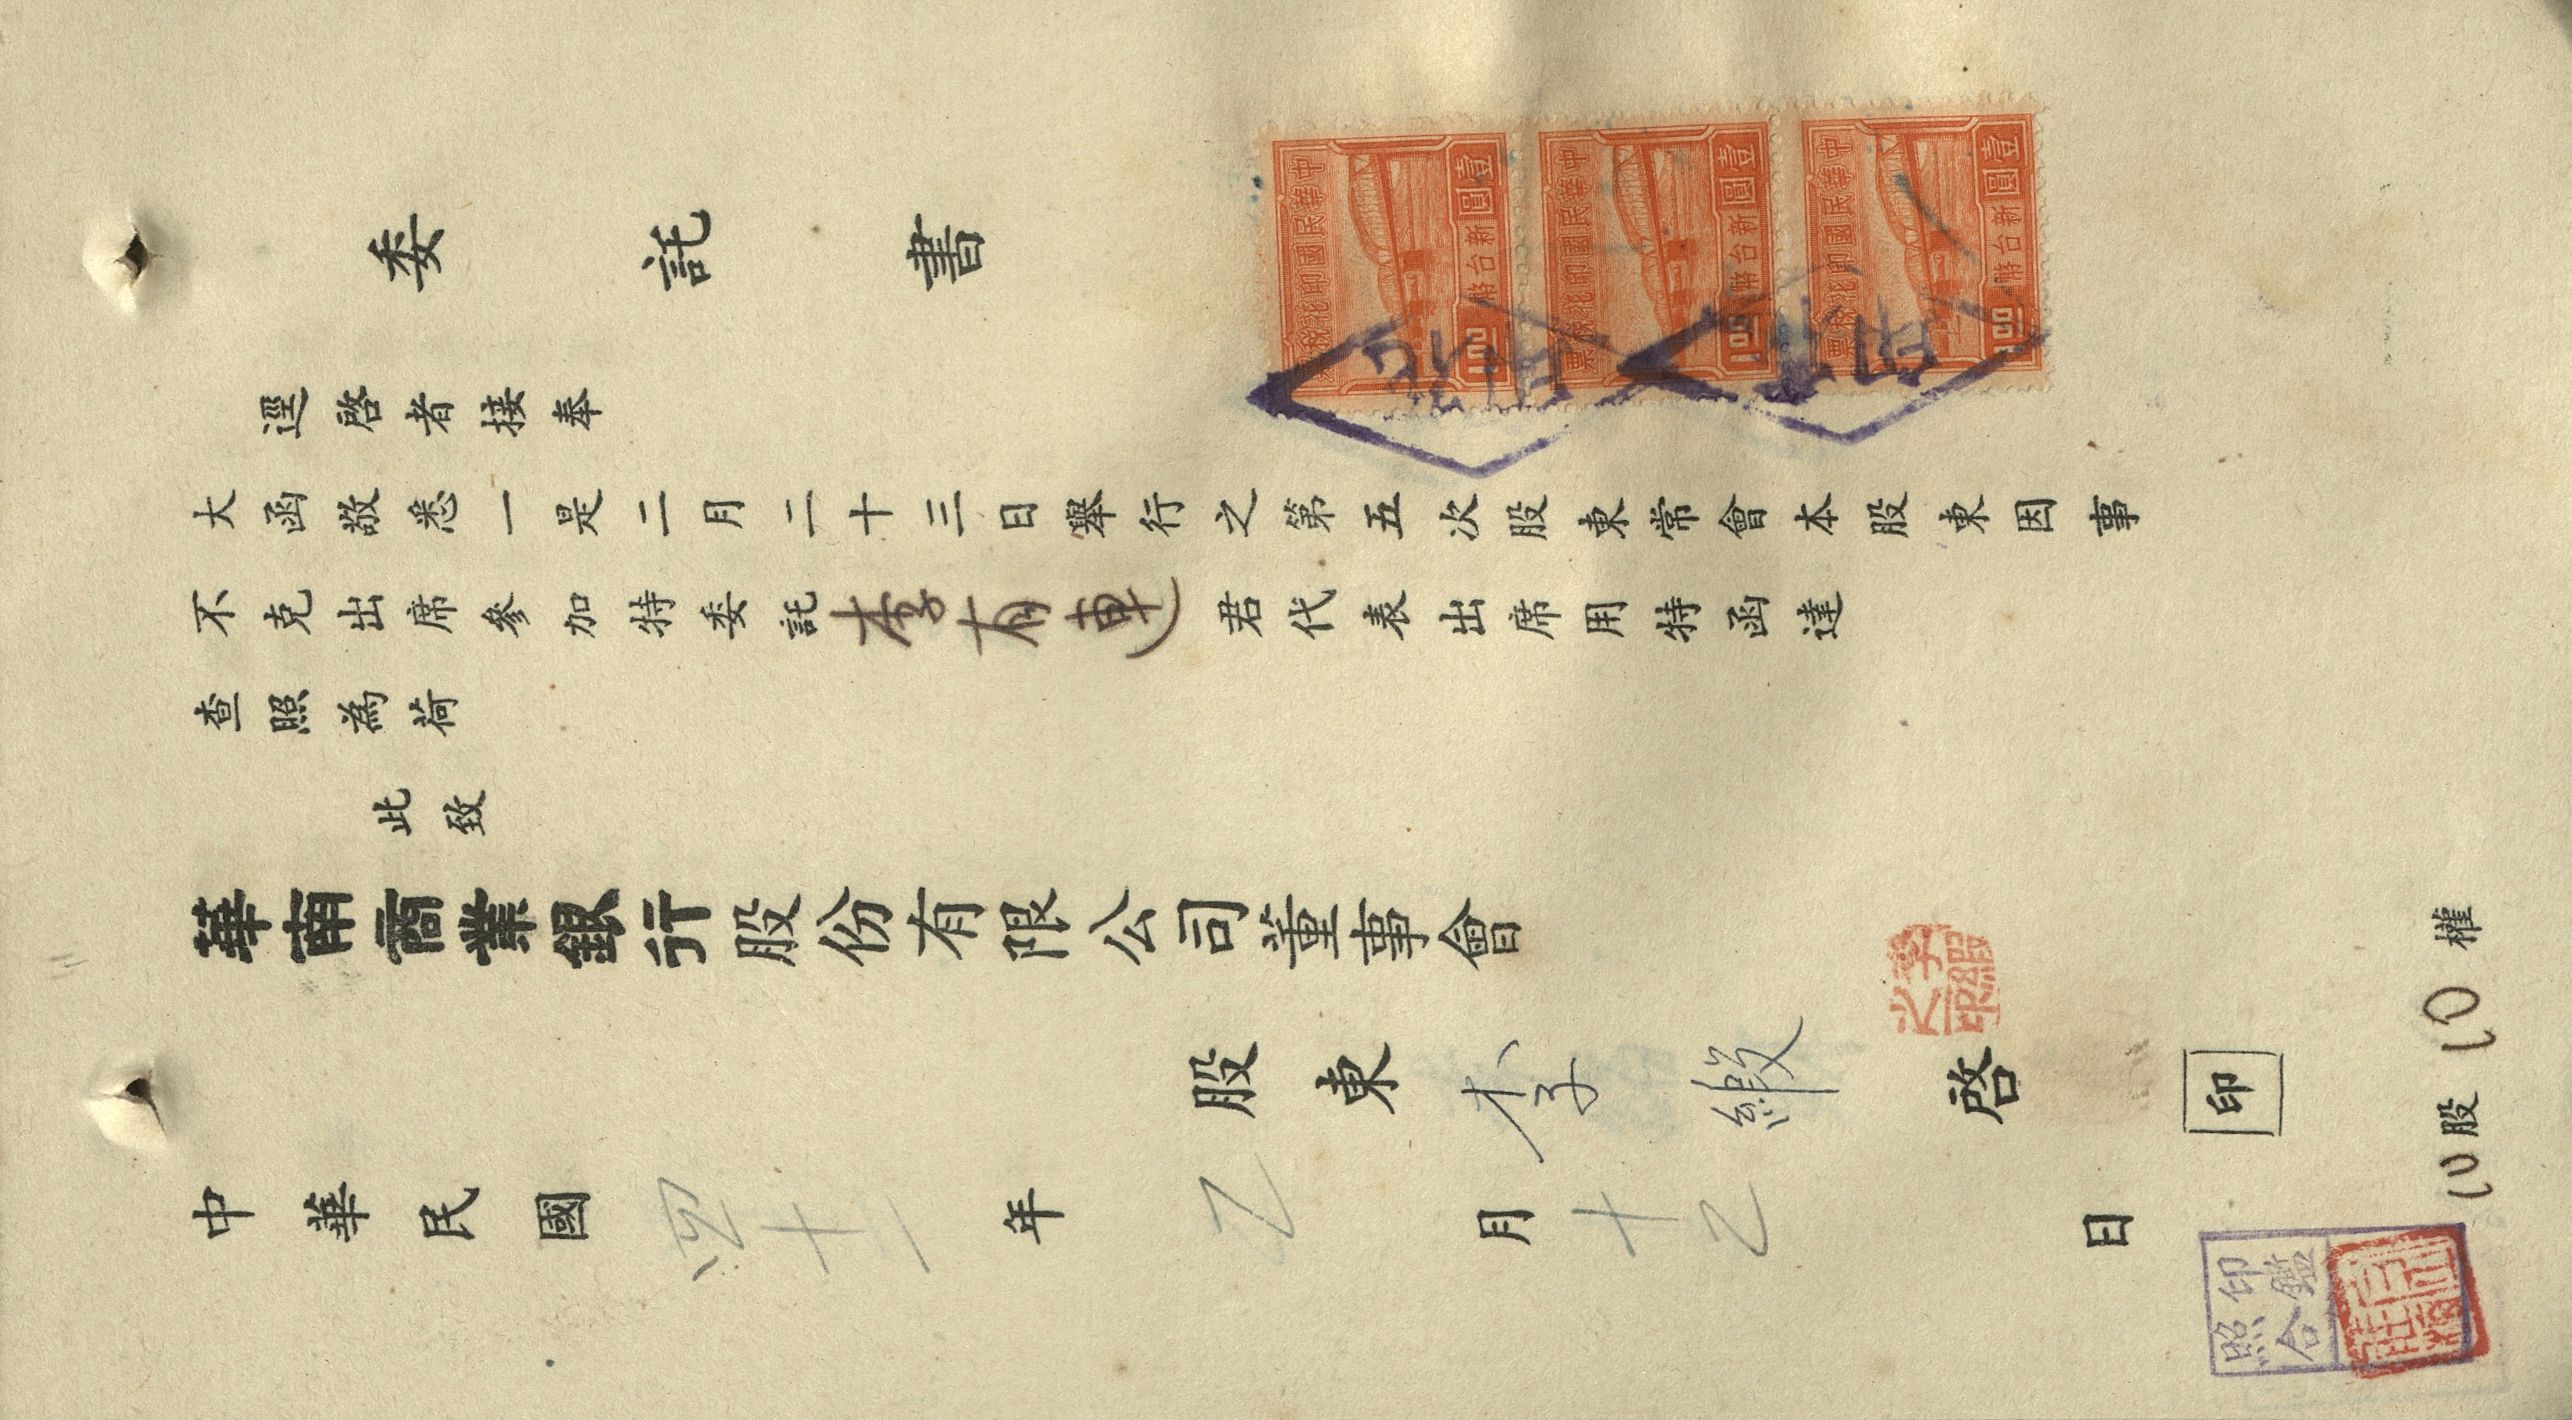 委託書
中華民國印花稅票
壹圓
新台幣
1.00
中華民國印花稅票
壹圓
新台幣
1.00
中華民國印花稅票
壹圓
新台幣
1.00
逕啓者接奉
大函敬悉一是二月二十三日舉行之第五次股東常會本股東因事
不克出席參加特委託李有連君代表出席用特函達
查照為荷
此致
華南商業銀行股份有限公司董事會
股東李緞啓 印
中華民國四十二年乙月十乙日
10股10權
印鑑
照合